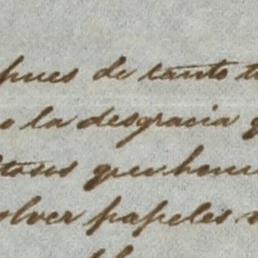 pues de tanto t
o la desgracia q
tosos que hom
olver papeles